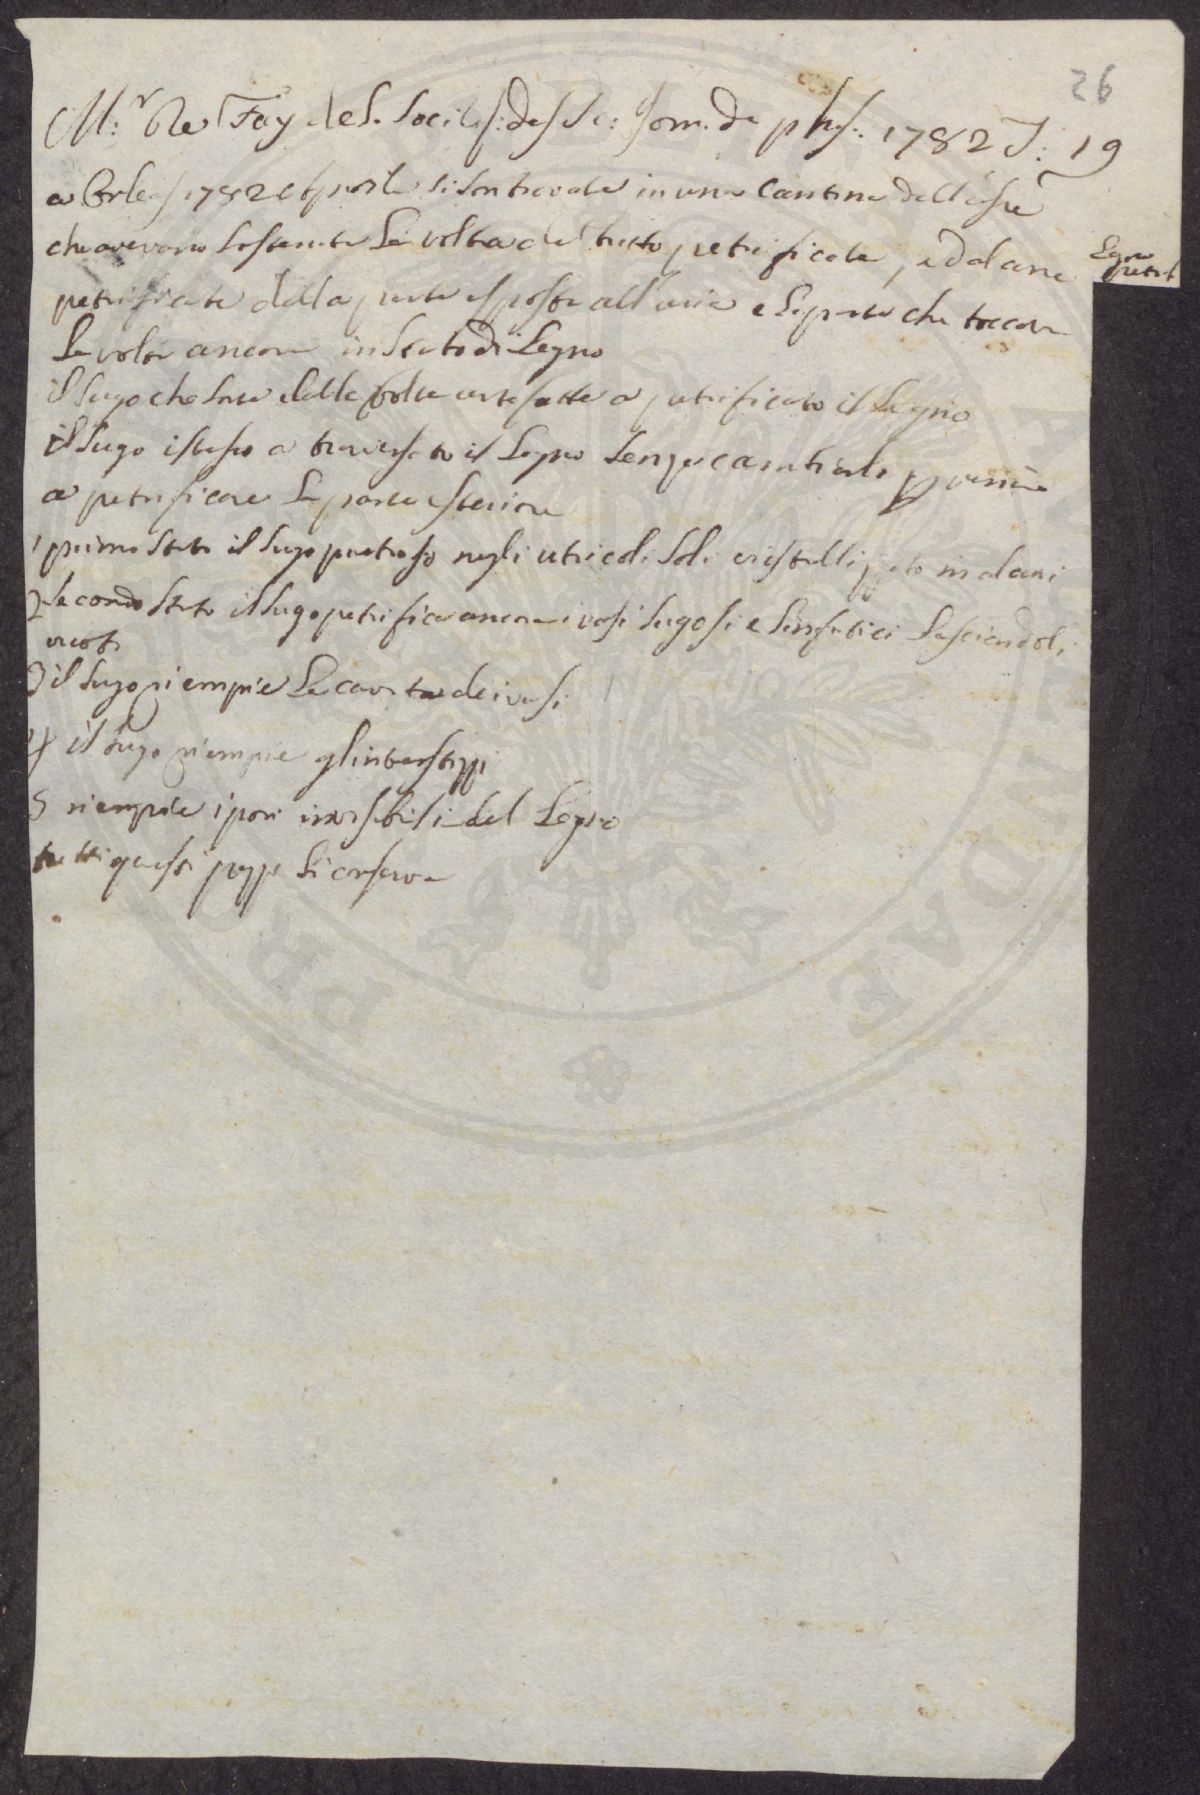 26
M:r De Fay de S. Societ: des Sc: Jorn. de phis: 1782 T: 19
a Orleas 1782 si son trovate in una Cantina dell asse
che avevano sostenuta la volta del tutto petrificate, ed alcune
Legno petrif
petrificate della parte esposta all aria e la parte che toccava
la volta ancora in stato di Legno
il sugo che sorte dalla volta a petrificato il Legno
il sugo istesso a traversato il Legno senza cambiarlo
a petrificare la parte esteriore
1 primo stato il sugo pietroso negli utricoli soli cristallizzato in alcuni
2 secondo stato il sugo petrifica ancora i vasi sugosi e linfatici lasciandoli
vuoti
3 il sugo riempie la cavita dei vasi
4 il sugo riempie gl interstizzi
5 riempie i pori invisibili del Legno
tutti questi pezzi li conserva